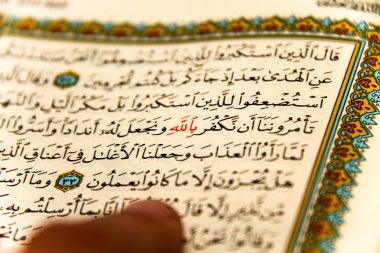 قَالَ الَّذِينَ اسْتَكْبَرُوا لِلَّذِينَ اسْتُضْعِفُوا
عَنِ الْهُدَىٰ بَعْدَ إِذْ جَاءَكُم بَلْ كُنتُم مُّجْرِمِينَ ٣٢ وَقَالَ الَّذِينَ
اسْتُضْعِفُوا لِلَّذِينَ اسْتَكْبَرُوا بَلْ مَكْرُ اللَّيْلِ وَالنَّهَارِ
تَأْمُرُونَنَا أَن نَّكْفُرَ بِاللَّهِ وَنَجْعَلَ لَهُ أَندَادًا وَأَسَرُّوا
لَمَّا رَأَوُا الْعَذَابَ وَجَعَلْنَا الْأَغْلَالَ فِي أَعْنَاقِ الَّذِينَ
هَلْ يُجْزَوْنَ إِلَّا مَا كَانُوا يَعْمَلُونَ ٣٣ وَمَا أَرْسَلْنَا
مِّن نَّذِيرٍ إِلَّا قَالَ إِنَّا بِمَا أُرْسِلْتُم بِهِ
وَقَالُوا نَحْنُ